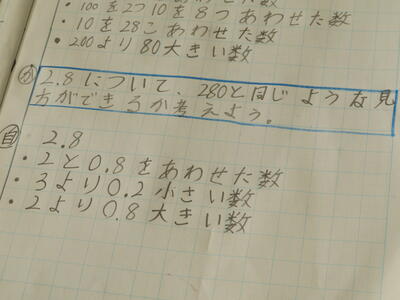 ・100を2つ10を8つあわせた数
・10を28こあわせた数
・200より80大きい数
め 2.8について、280と同じような見
方ができるか考えよう。
自 2.8
・2と0.8をあわせた数
・3より0.2小さい数
・2より0.8大きい数